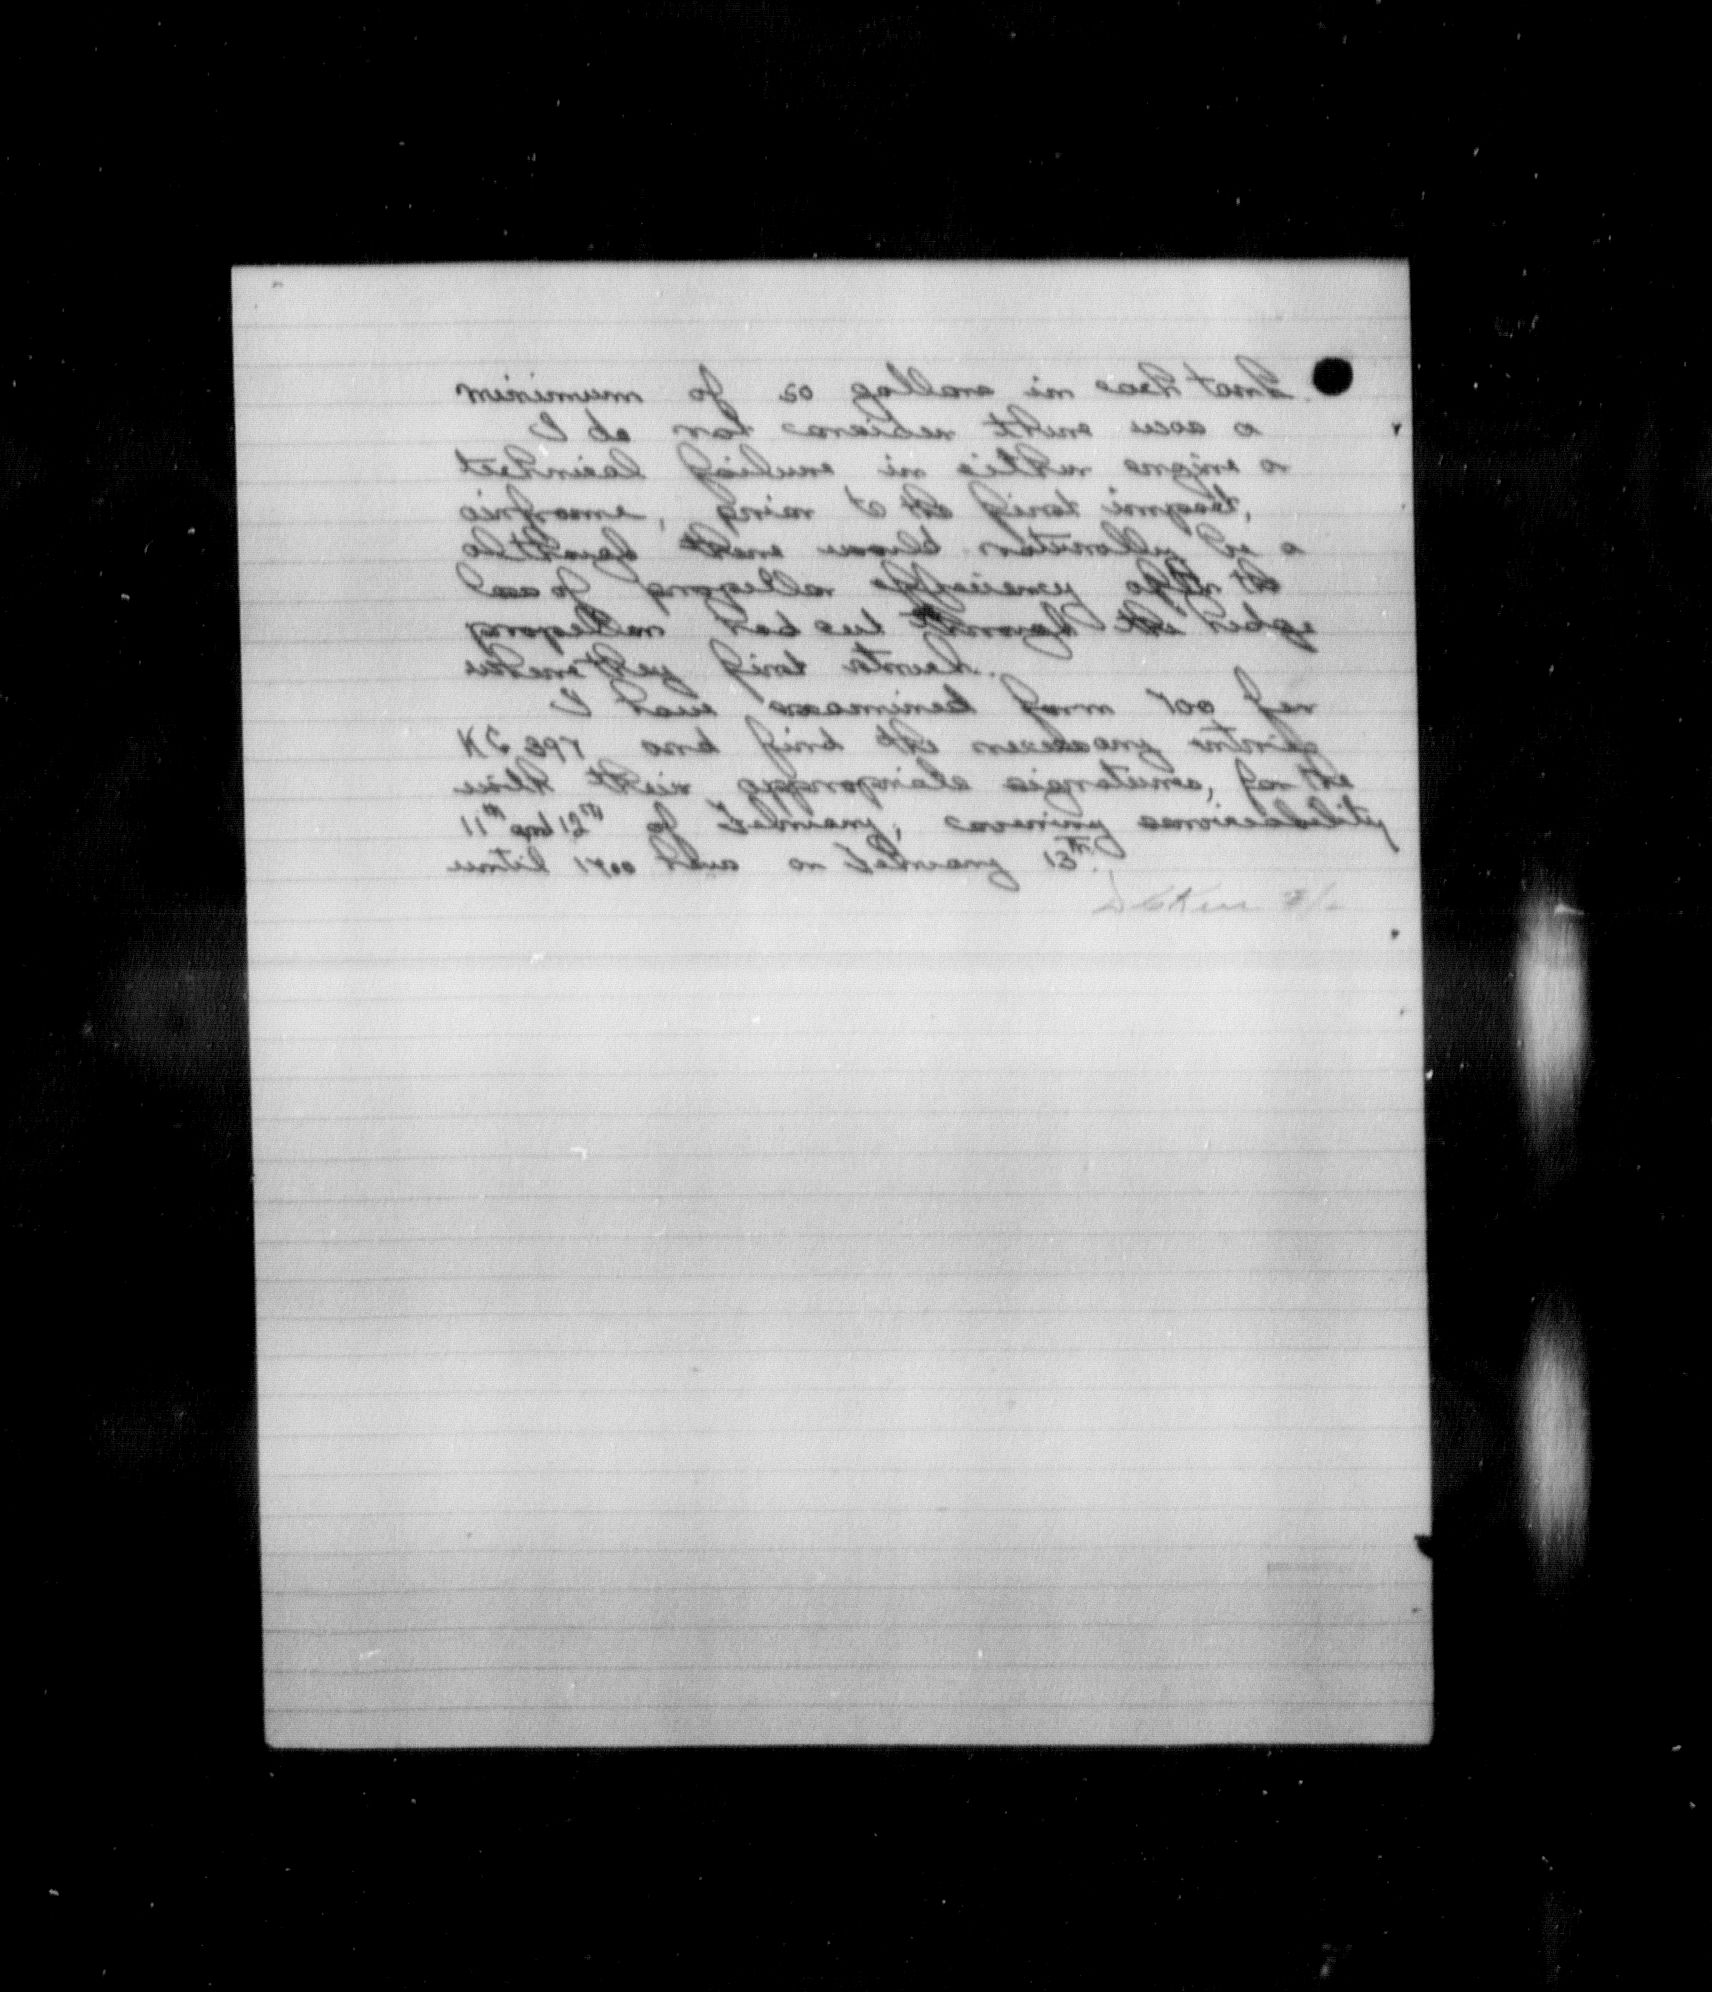 minimum of 20 gallons in each tank.
I do not consider there was a
technical failure in either engine or
airframe, prior to the first impact,
although there would naturally be a
loss of propeller efficiency after the
propeller had cut through the hedge
when they first struck.
I have examined form 700 for
and find the necessary entries
with their appropriate signatures, for the
11th and 12th of January, covering serviceability
until 1700 hrs on January 13th.